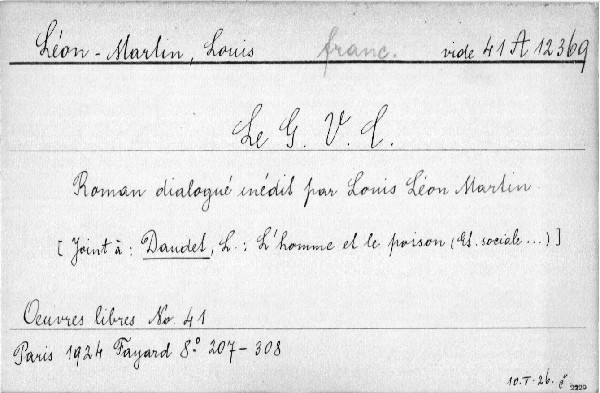 Léon-Martin, Louis franc. vide 41 A 12369
Le G. V. C.
Roman dialogué inédit par Louis Léon Martin.
[Joint à: Daudet, L.: L'homme et le poison (Et. sociale...)]
Oeuvres libres No. 41
Paris 1924 Fayard 8.° 207-308
10.I.26. č